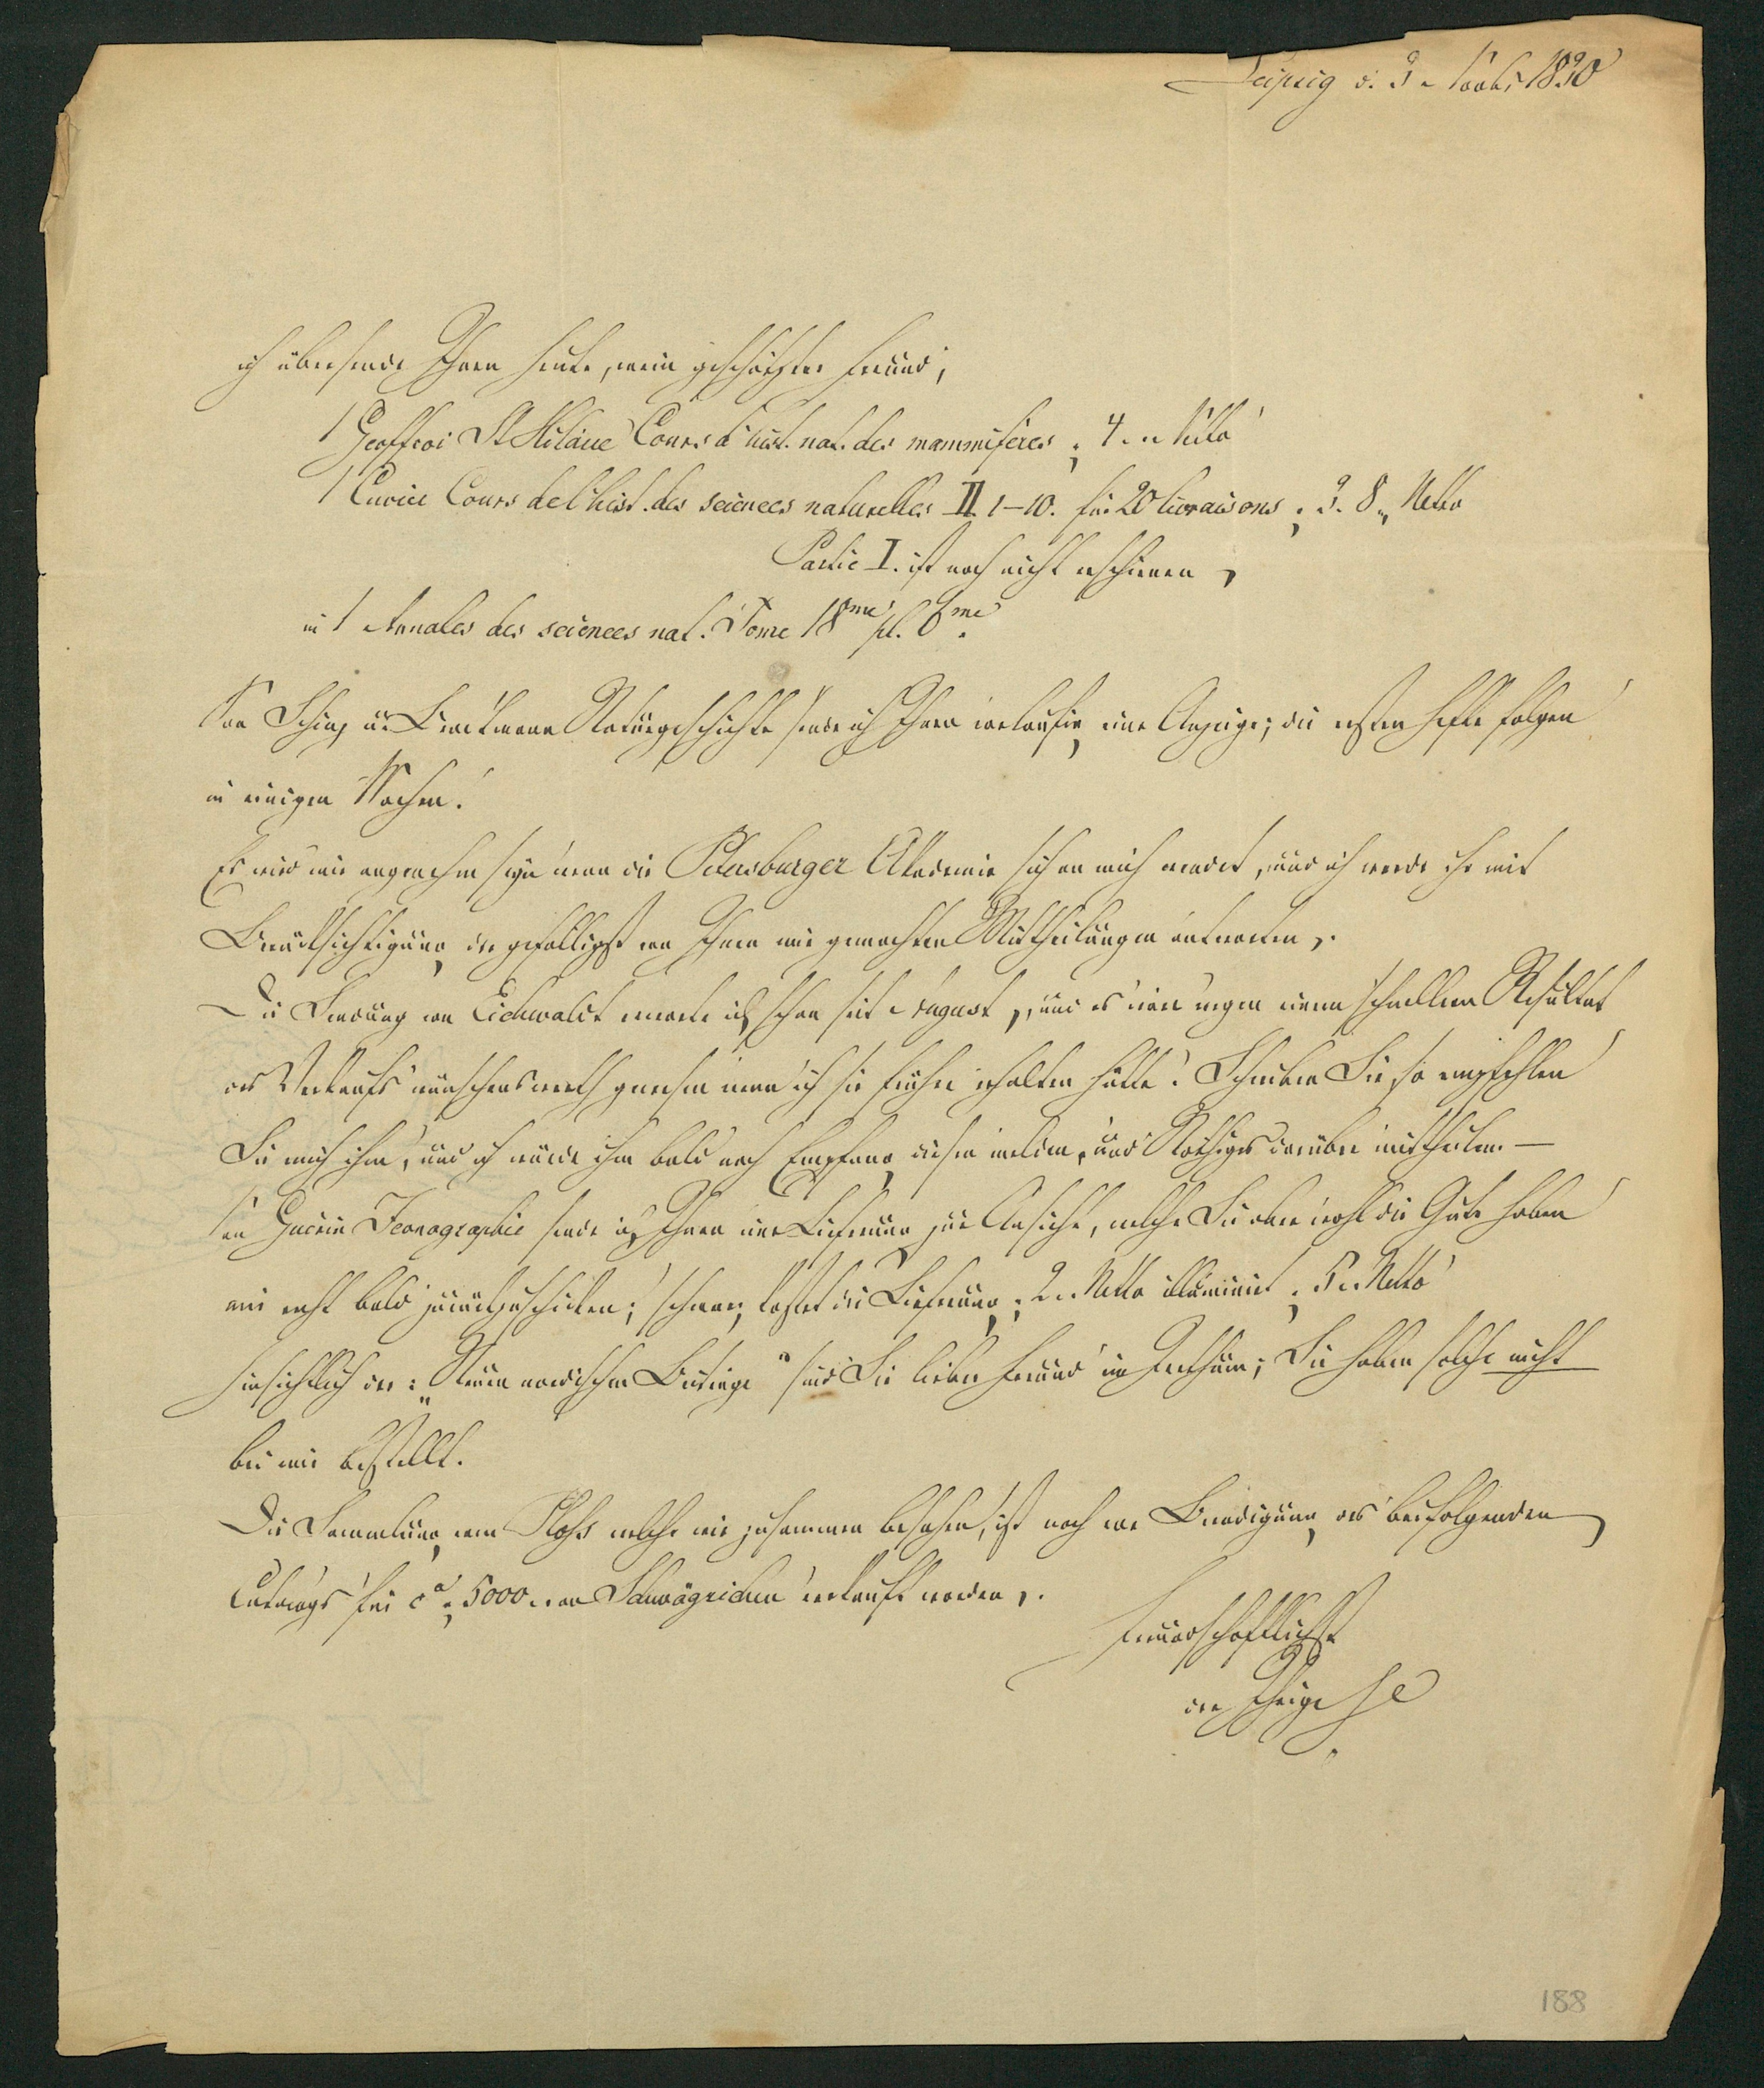 Leipzig d. 3. Novbr 1830
ich übersende Ihnen heute, mein geschätzter Freund,
1 Geoffroi St Hilaire Cours d'hist. nat. des mammifères 4. Netto
1 Cuvier Cours de l'hist. des sciences naturelles II 1–10. für 20 livraisons 3. 8 Netto
Partie I. ist noch nicht erschienen,
1 Annales des sciences nat. Tome 18me pl. 6me
Von Schinz u. Brodtmann Naturgeschichte sende ich Ihnen vorläufig eine Anzeige; die ersten Hefte folgen
in einigen Wochen!
Es wird mir angenehm seyn wenn die Petersburger Akademie sich an mich wendet, und ich werde ihr mit
Berücksichtigung der gefälligst von Ihnen mir gemachten Mittheilungen antworten.
Die Sendung von Eichwaldt erwarte ich schon seit August, und es wäre wegen einem schnellern Resultat
des Verkaufs wünschenswerth gewesen wenn ich sie früher erhalten hätte! Schreiben Sie so empfehlen
Sie mich ihm, und ich würde ihm bald nach Empfang diesen melden, und Nöthiges darüber mittheilen. –
Von Guérin Iconographie sende ich Ihnen eine Lieferung zur Ansicht, welche Sie aber wohl die Güte haben
mir recht bald zurückzuschicken; schwarz kostet die Lieferung 2. Netto illuminirt 5. Netto
Hinsichtlich der: „Neuen nordischen Beiträge" sind Sie lieber Freund im Irrthum; Sie haben solche nicht
bei mir bestellt.
Die Sammlung von Ploss welche wir zusammen besahen, ist noch vor Beendigung des beifolgenden
Catalogs für ca 5000 an Schwägrichen verkauft worden.
Freundschaftlichst
der Ihrige
188